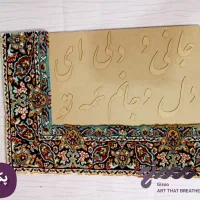 جانی و دلی ای
دل و جانم همه تو
Gisoo
ART THAT BREATHE